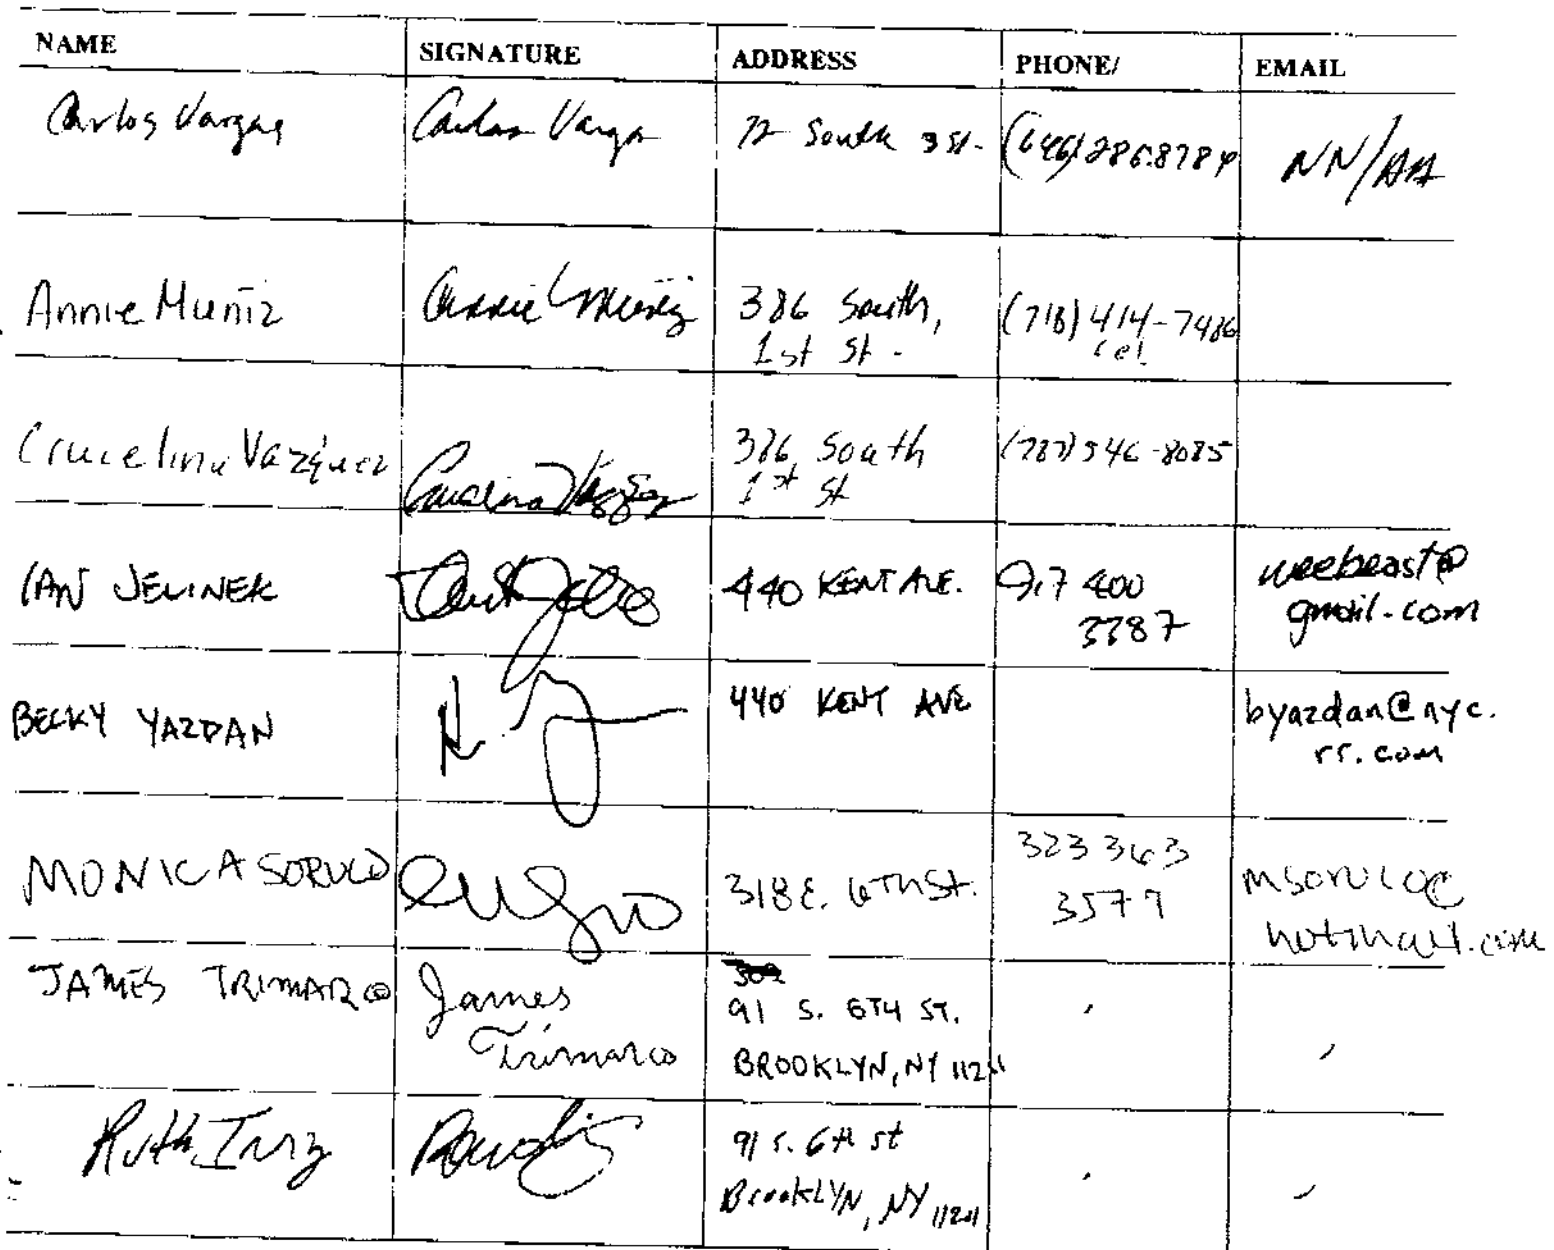 NAME SIGNATURE ADDRESS PHONE/ EMAIL
Carlos Vargas Carlos Varga 72 South 3 St. (646) 286.8784 NN/AA
Annie Muñiz Annie Muñiz 386 South, (718) 414-7486
1st St. cel
Vazquez 386 South (787) 546-8085
1st St
IAN JELINEK 440 KENT AVE. 917 400 weebeast@
3387 gmail.com
BECKY YAZDAN 440 KENT AVE byazdan@nyc.
rr.com
MONICA SORUCO 318 E. 6TH St. 323 363 msoruco@
3577 hotmail.com
JAMES TRIMARCO James 302
Trimarco 91 S. 6TH ST.
BROOKLYN, NY 11211
Ruth 91 S. 6th st
BrookLYN, NY 11211